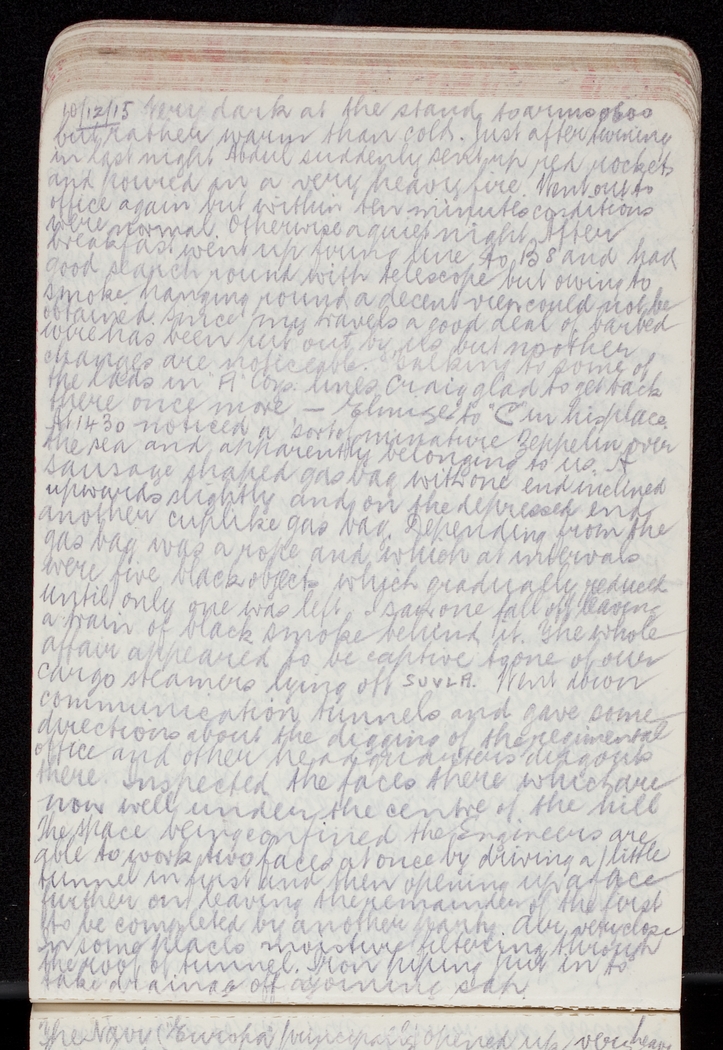 10/12/15 Very dark at the stand to arms 0600
but rather warm than cold. Just after turning
in last night Abdul suddenly sent up red rockets
and poured in a very heavy fire. Went out to
office again but within ten minutes conditions
were normal. Otherwise a quiet night. After
breakfast went up firing line to 138 and had
good search round with telescope but owing to
smoke hanging round a decent view could not be
obtained. Since my travels a good deal of barbed
wire has been put out by us but no other
changes are noticeable. Talking to some of
the lads in A Coys. lines Craig glad to get back
there once more — to "C" in his place.
At 1430 noticed a sort of minature Zeppelin over
the sea and apparently belonging to us. A
sausage shaped gas bag with one end inclined
upwards slightly and on the depressed end
another cuplike gas bag. Depending from the
gas bag was a rope and which at intervals
were five black objects which gradually reduced
until only one was left. I saw one fall off leaving
a train of black smoke behind it. The whole
affair appeared to be captive to one of our
cargo steamers lying off SUVLA. Went down
communication tunnels and gave some
directions about the digging of the regimental
office and other headquarters dugouts
there. Inspected the faces there which are
now well under the centre of the hill
The space being confined the Engineers are
able to work two faces at once by driving a little
tunnel in first and then opening up a face
further on leaving the remainder of the first
to be completed by another party. Air very close
in some places moisture filtering through
the roof of tunnel. Iron piping put in to
take drainage off ajoining sap.
The Navy (Europa principally) opened up very heavy